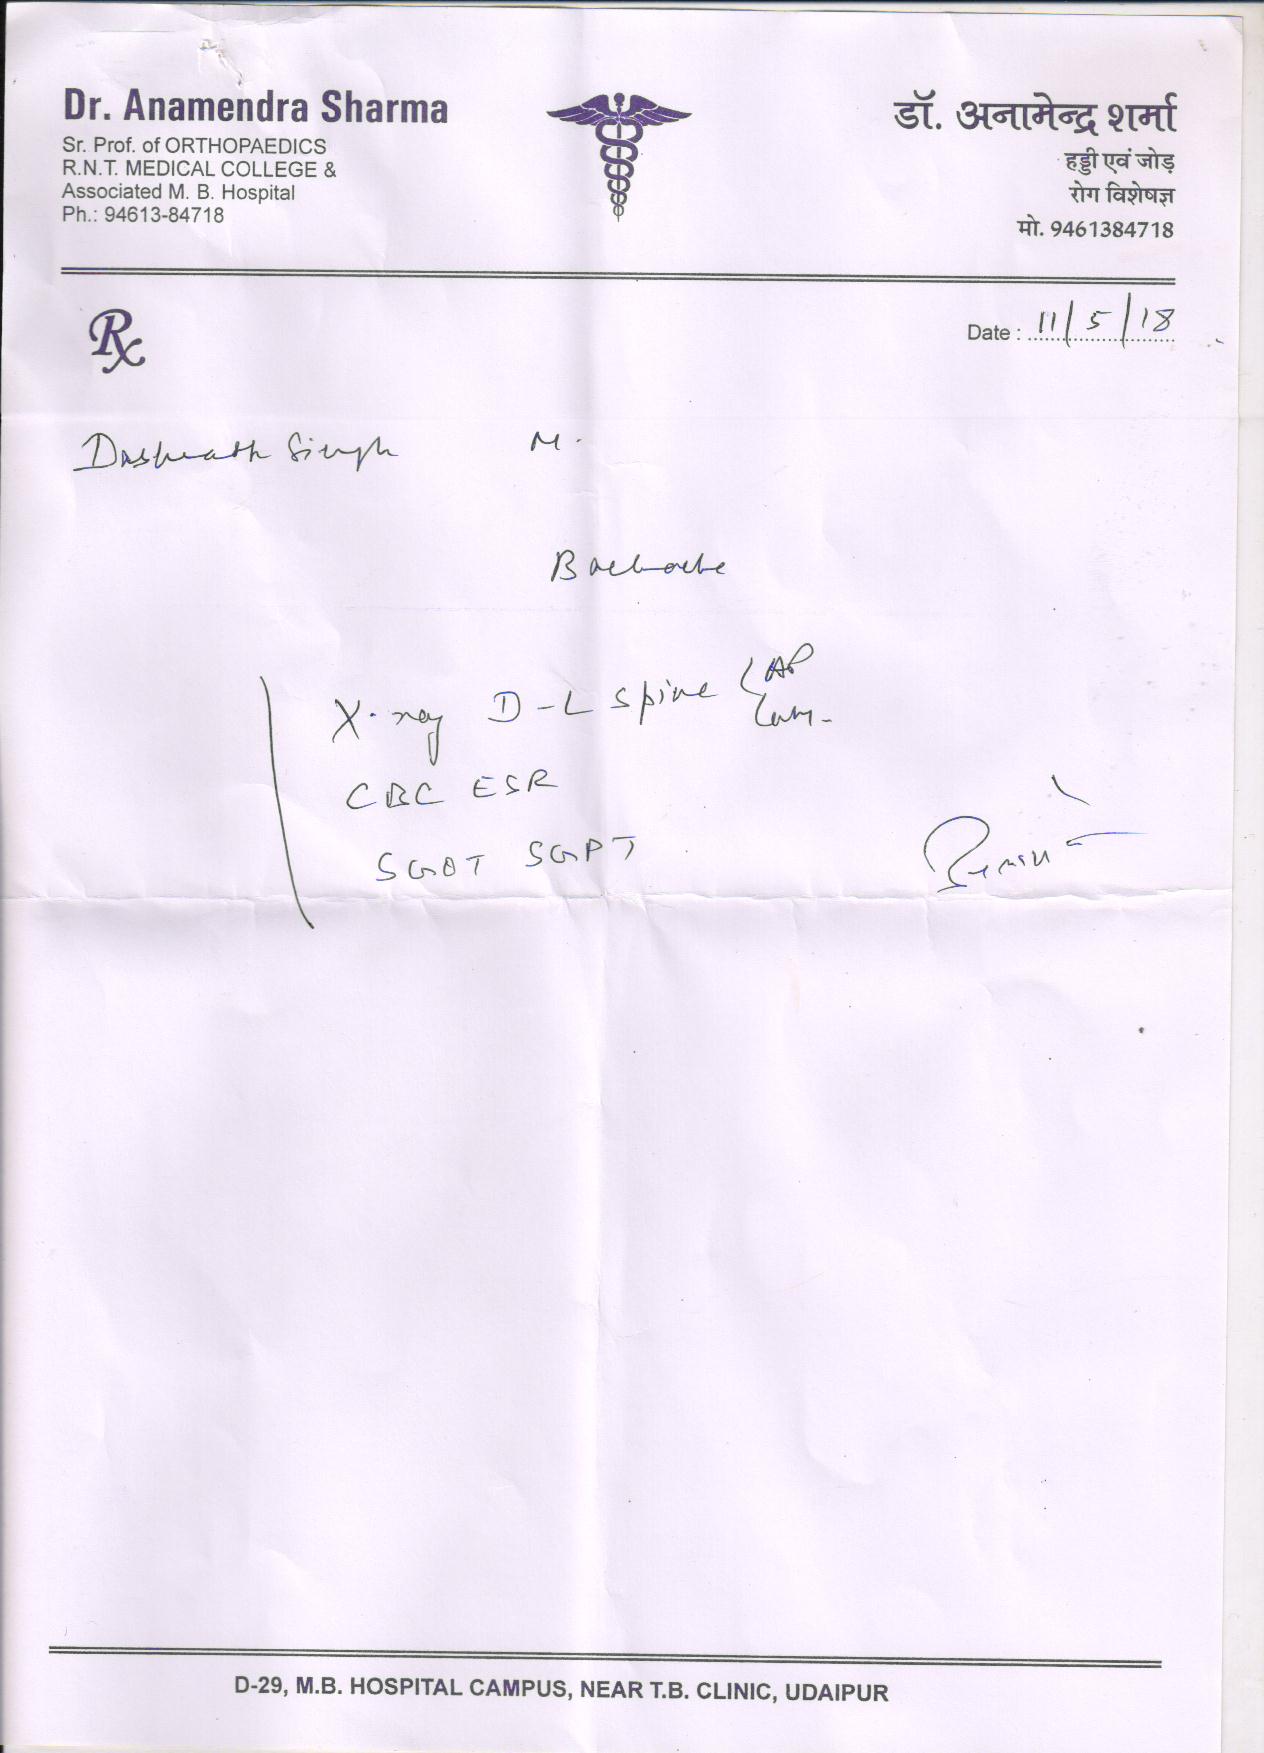 Dr. Anamendra Sharma
Sr. Prof. of ORTHOPAEDICS
R.N.T. MEDICAL COLLEGE &
Associated M. B. Hospital
Ph.: 94613-84718
डॉ. अनामेन्द्र शर्मा
हड्डी एवं जोड़
रोग विशेषज्ञ
मो. 9461384718
Rx
Date : 11/5/18
Dashrath Singh M.
Backache
X-ray D-L Spine AP
Lat.
CBC ESR
SGOT SGPT
D-29, M.B. HOSPITAL CAMPUS, NEAR T.B. CLINIC, UDAIPUR